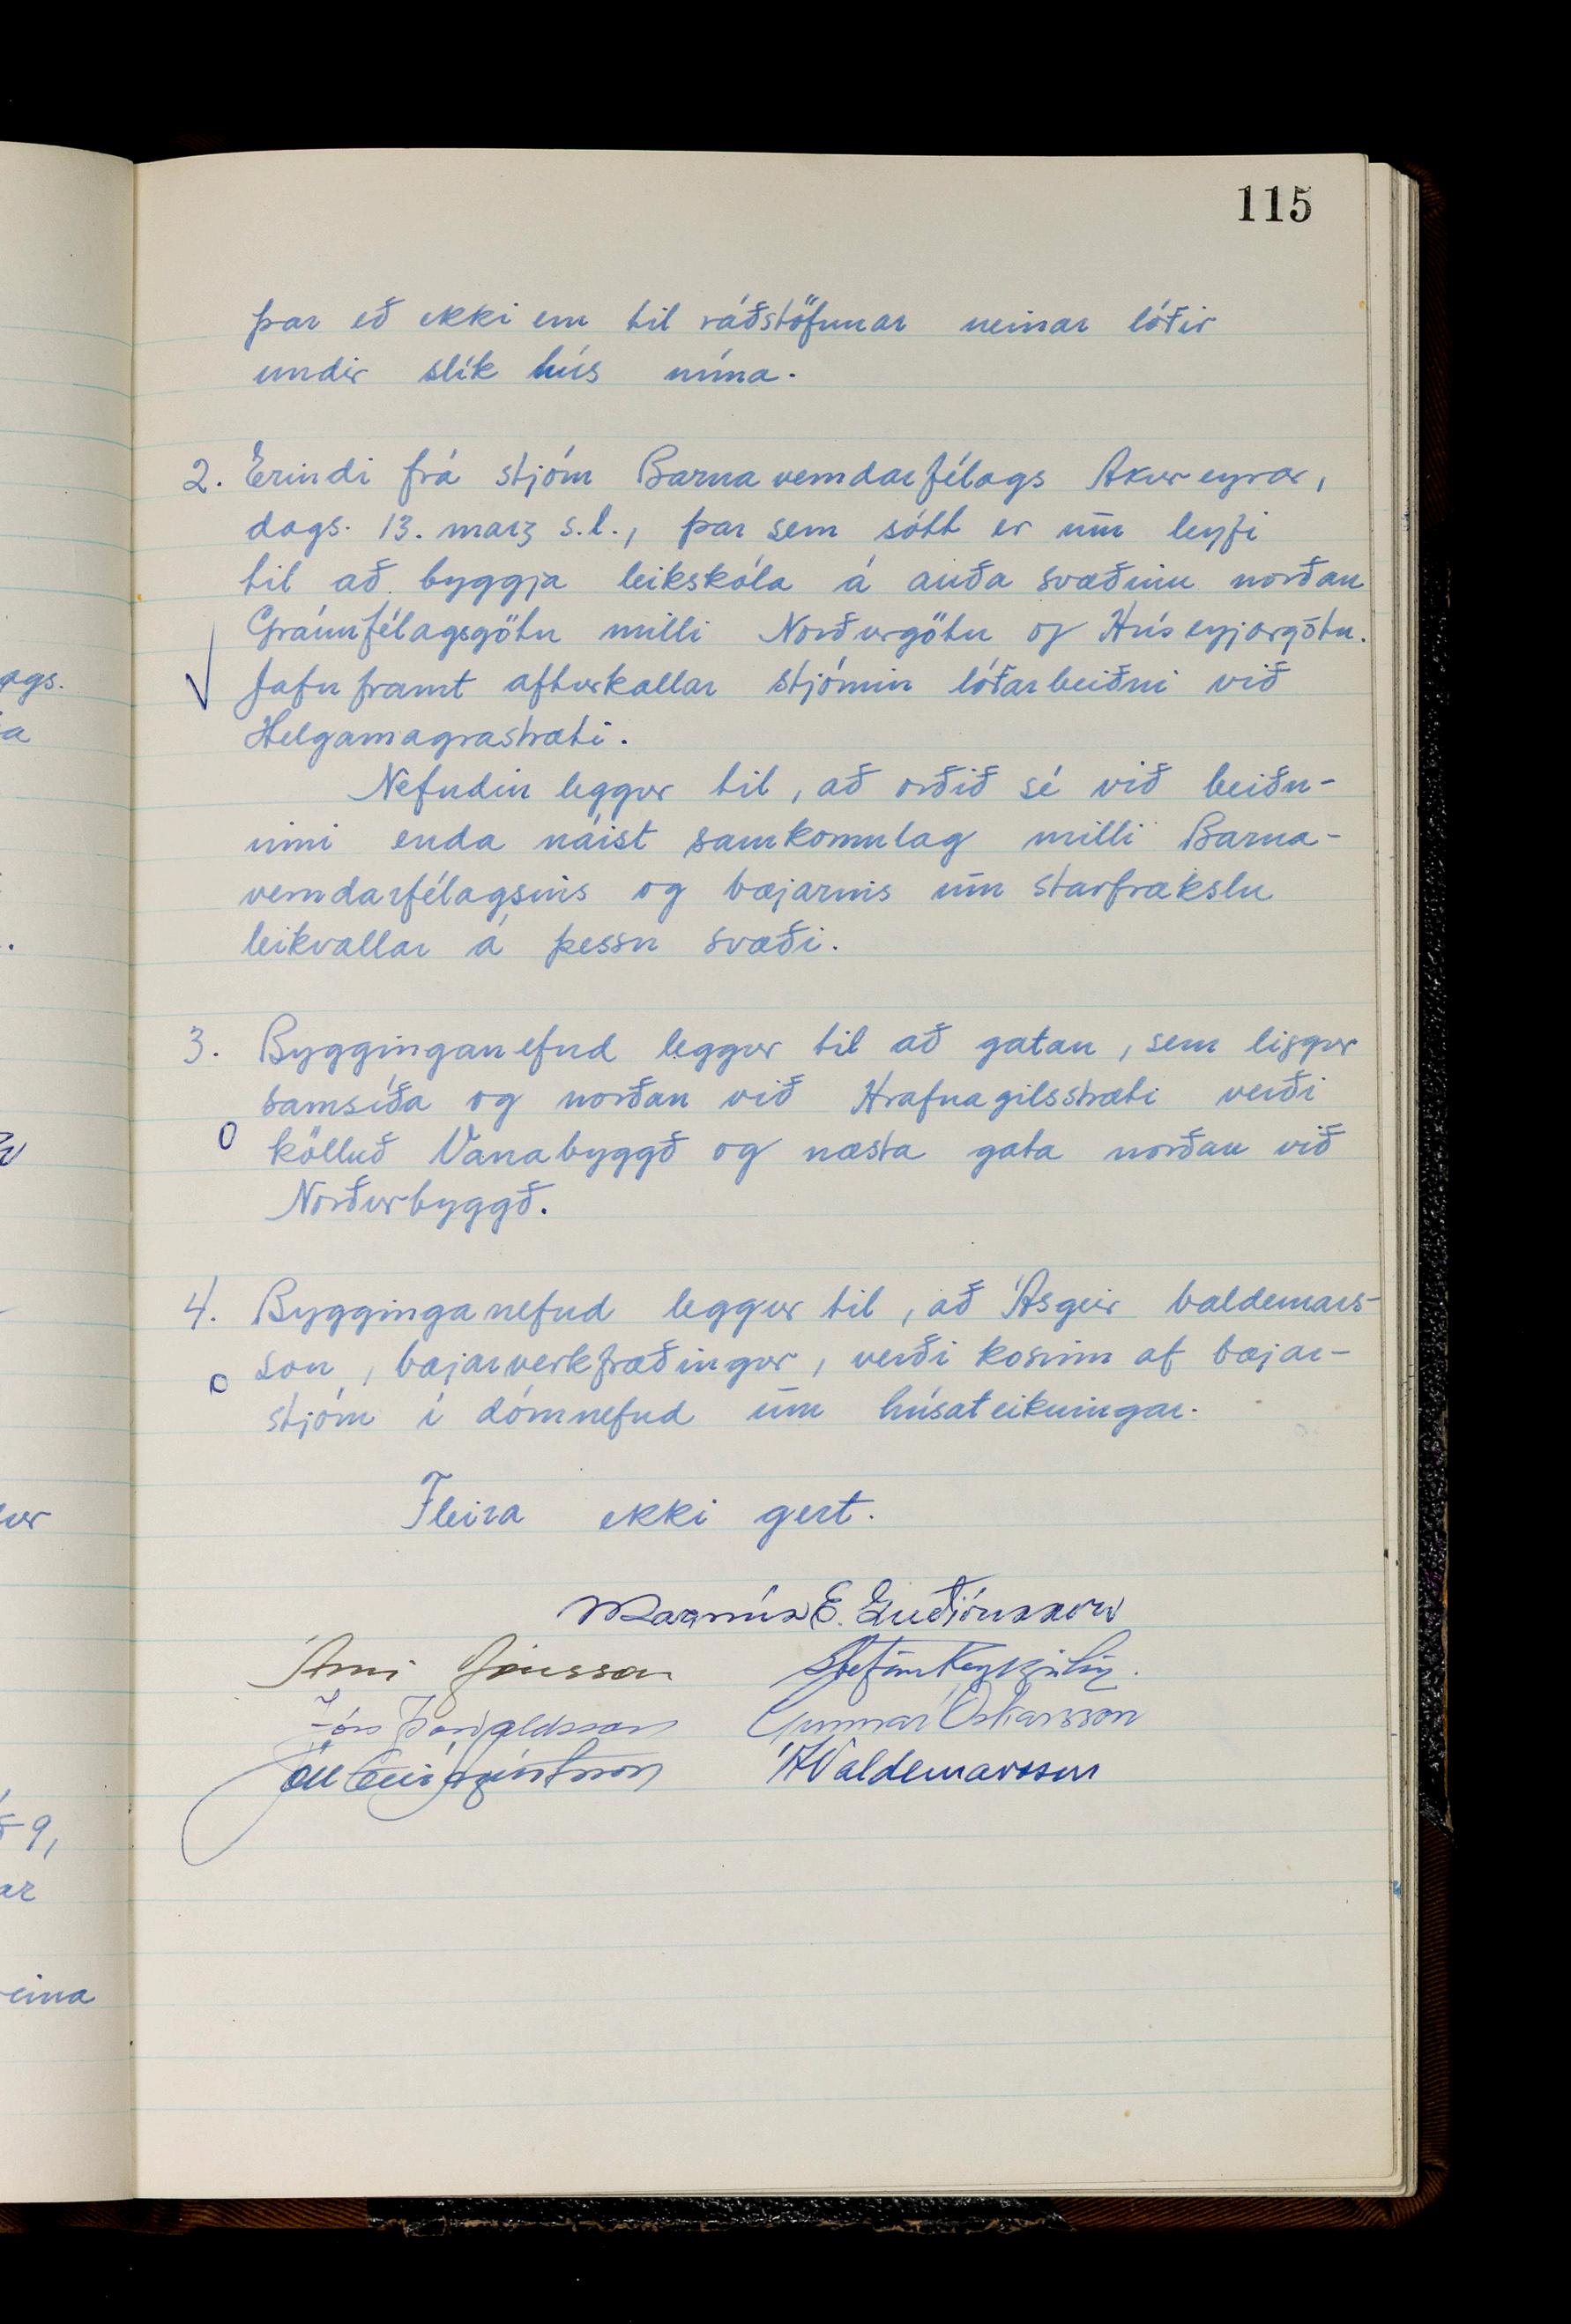 115
þar eð ekki eru til ráðstöfunar neinar lóðir
undir slík hús núna.
2. Erindi frá stjórn Barnaverndarfélags Akureyrar,
dags. 13. marz s.l., þar sem sótt er um leyfi
til að byggja leikskóla á auða svæðinu norðan
Gránufélagsgötu milli Norðurgötu og Húseyjargötu.
Jafnframt afturkallar stjórnin lóðarbeiðni við
Helgamagrastræti.
Nefndin leggur til, að orðið sé við beiðn-
inni enda náist samkomulag milli Barna-
verndarfélagsins og bæjarins um starfrækslu
leikvallar á þessu svæði.
3. Bygginganefnd leggur til að gatan, sem liggur
samsíða og norðan við Hrafnagilsstræti verði
kölluð Vanabyggð og næsta gata norðan við
Norðurbyggð.
4. Bygginganefnd leggur til, að Ásgeir Valdemars-
son, bæjarverkfræðingur, verði kosinn af bæjar-
stjórn í dómnefnd um húsateikningar.
Fleira ekki gert.
Magnús E. Guðjónsson
Árni Jónsson Stefán Reykjalín.
Jón Þorvaldsson Gunnar Óskarsson
ÁValdemarsson
ags.
a
ur
9,
ar
eina